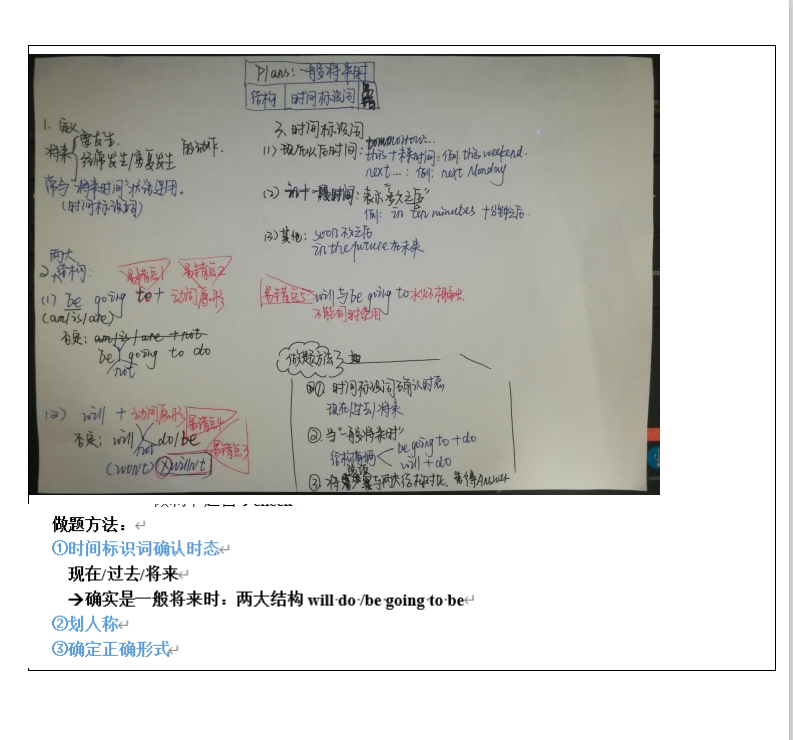 Plans: 一般将来时
结构 时间标识词 易错
1. 定义
将来 要发生
经常发生/重复发生 的动作.
常与“将来时间”状语连用。
(时间标识词)
两大
2、结构:
易错点1 易错点2
(1) be going to + 动词原形
(am/is/are)
否定: am/is/are + not
be going to do
not
(2) will + 动词原形 易错点4
否定: will do/be 易错点3
not
(won't) willn't
3、时间标识词
(1) 现在以后时间: tommorrow...
this + 未来时间: 例 this weekend.
next...: 例: next Monday
(2) in + 一段时间: 表示“多久之后”
例: in ten minutes 十分钟之后.
(3) 其他: soon 不久之后
in the future 在未来
易错点5: will 与 be going to 水火不相容.
不能同时使用
做题方法
① 时间标识词 确认时态
现在/过去/将来
② 当“一般将来时”
结构有俩 be going to + do
will + do
③ 将 与两大结构对比, 获得Answer
做题方法：
①时间标识词确认时态
现在/过去/将来
→确实是一般将来时：两大结构 will do /be going to be
②划人称
③确定正确形式